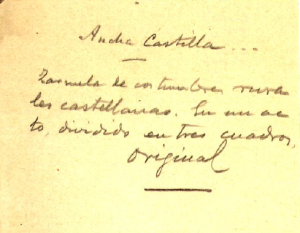 Ancha Castilla...
Zarzuela de costumbres rura
les castellanas. En un ac
to, dividido en tres cuadros,
original